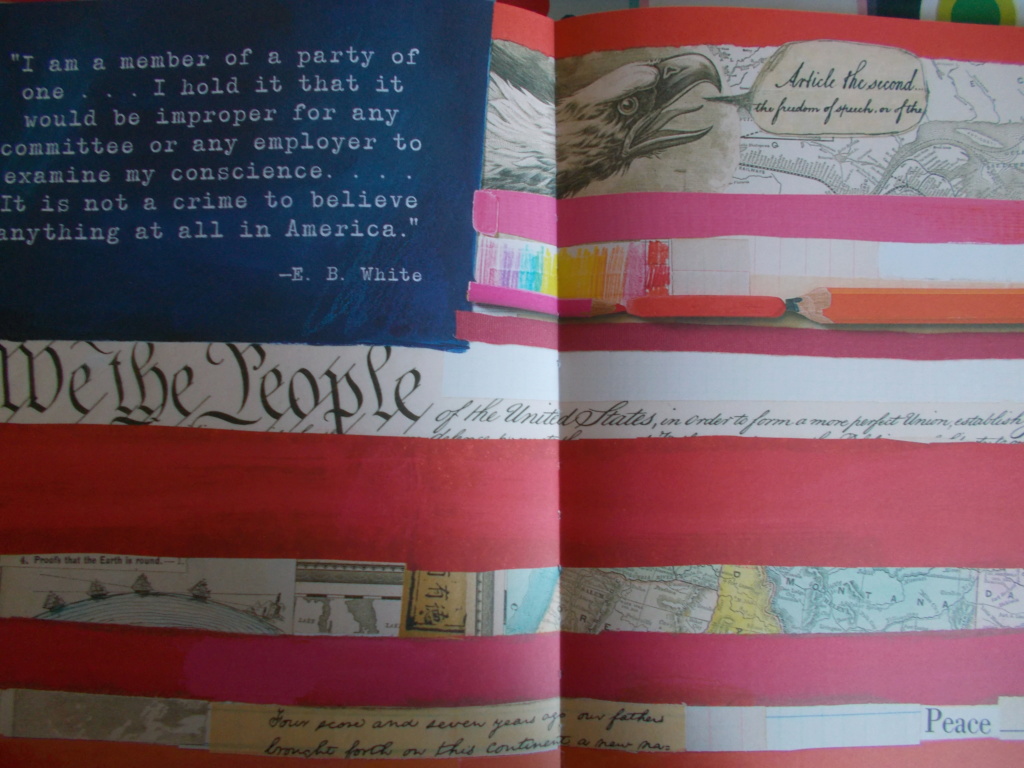 "I am a member of a party of
one . . . I hold it that it
would be improper for any
committee or any employer to
examine my conscience. . . .
It is not a crime to believe
anything at all in America."
—E. B. White
Article the second
the freedom of speech, or of the
We the People
of the United States, in order to form a more perfect Union, establish
4. Proofs that the Earth is round.—1.
有德
MONTANA
Four score and seven years ago our father
brought forth on this continent a new na-
Peace